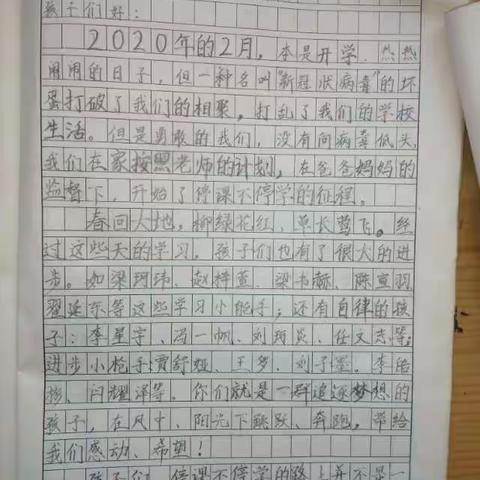 孩子们好：
2020年的2月，本是开学、热热
闹闹的日子，但一种名叫“新冠状病毒”的坏
蛋打破了我们的相聚，打乱了我们的学校
生活。但是勇敢的我们，没有向病毒低头，
我们在家按照老师的计划，在爸爸妈妈的
监督下，开始了停课不停学的征程。
春回大地，柳绿花红，草长莺飞。经
过这些天的学习，孩子们也有了很大的进
步。如梁珂玮、赵梓萱、梁书赫、陈宣羽
翟延东等这些学习小能手；还有自律的孩
子：李星宇、冯一帆、刘珂炎、任文志等；
进步小枪手：贾舒娅、王梦、刘子墨、李皓
、闫耀泽等。你们就是一群追逐梦想的
孩子，在风中、阳光下跳跃、奔跑，带给
我们感动、希望！
孩子们，停课不停学的路上并不是一